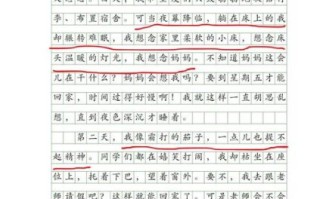 李、布置宿舍。可当夜幕降临，躺在床上的我
却辗转难眠，我想念家里柔软的小床，想念床
头温暖的灯光，我想念妈妈。不知道妈妈这会
儿在干什么？妈妈会想我吗？要到星期五才能
回家，时间过得好慢啊！我就这样一直胡思乱
想，直到夜色深沉才睡着。
第二天，我像霜打的茄子，一点儿也提不
起精神。同学们都在嬉笑打闹，我却枯坐在座
位上，托着下巴，望着窗外。要不，我去跟老